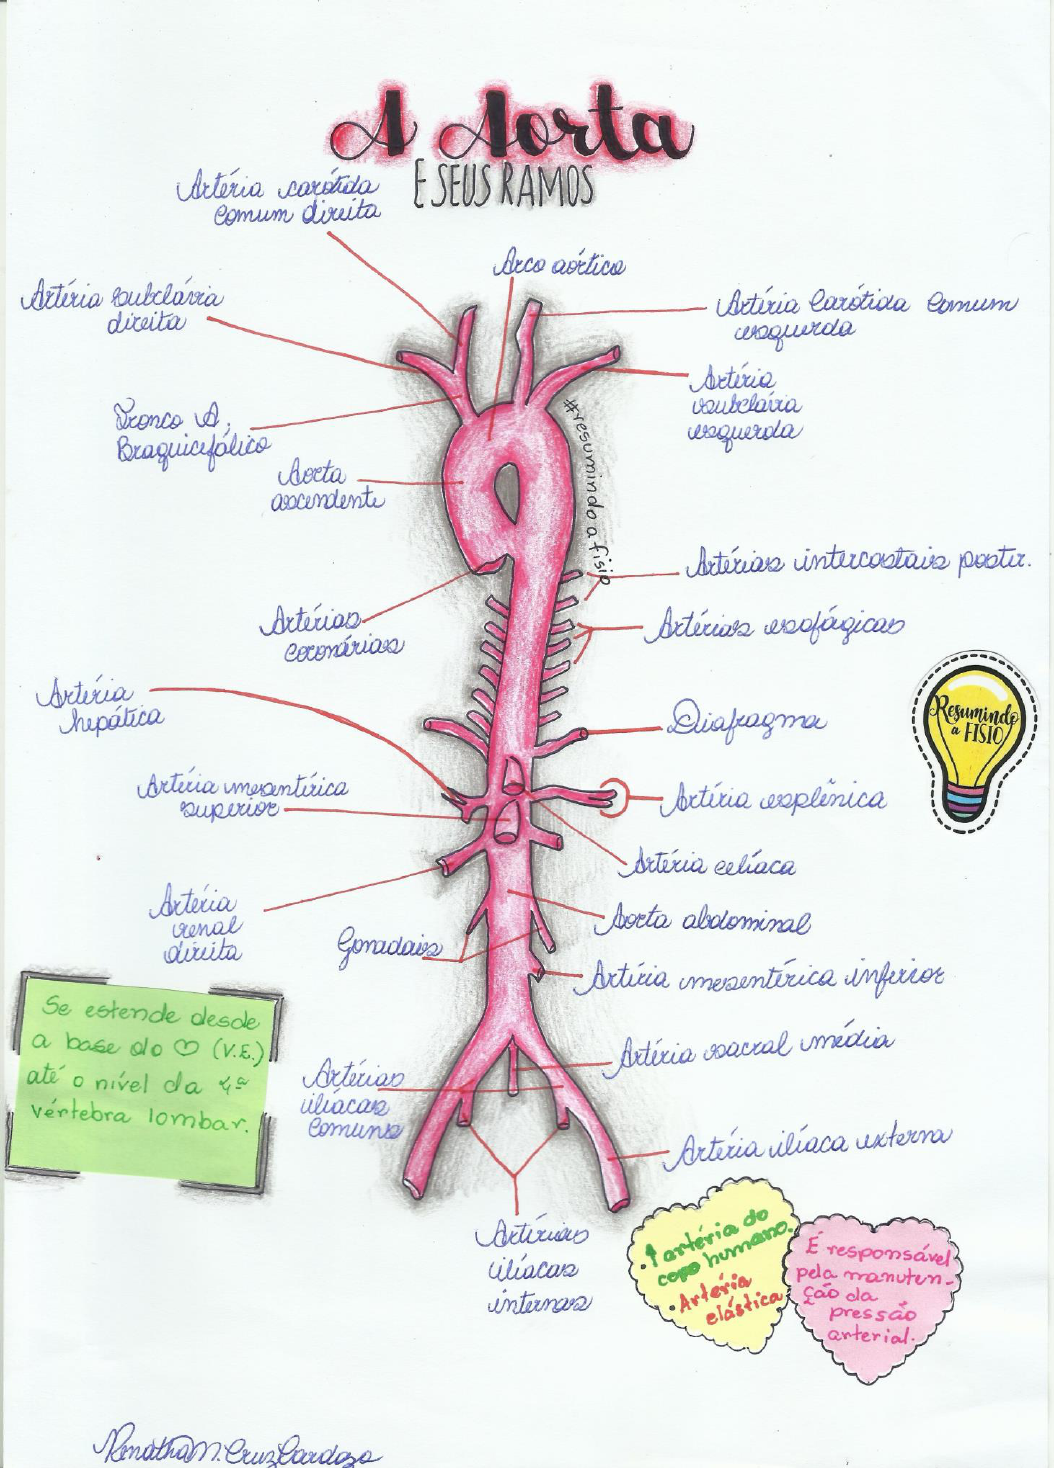 A Aorta
E SEUS RAMOS
Artéria carótida
comum direita
Arco aórtico
Artéria subclávia
direita
Artéria Carótida Comum
esquerda
Artéria
subclávia
esquerda
Tronco A.
Braquicefálico
Aorta
ascendente
#resumindo a fisio
Artérias intercostais poster.
Artérias
coronárias
Artérias esofágicas
Artéria
hepática
Diafragma
Resumindo
a FISIO
Artéria mesentérica
superior
Artéria esplênica
Artéria celíaca
Artéria
renal
direita
Aorta abdominal
Gonadais
Artéria mesentérica inferior
Se estende desde
a base do ♡ (V.E.)
até o nível da 4ª
vértebra lombar.
Artéria sacral média
Artérias
ilíacas
comuns
Artéria ilíaca externa
Artérias
ilíacas
internas
• ↑ artéria do
copo humano.
• Artéria
elástica
É responsável
pela manuten-
ção da
pressão
arterial.
Renatha M. Cruz Cardozo